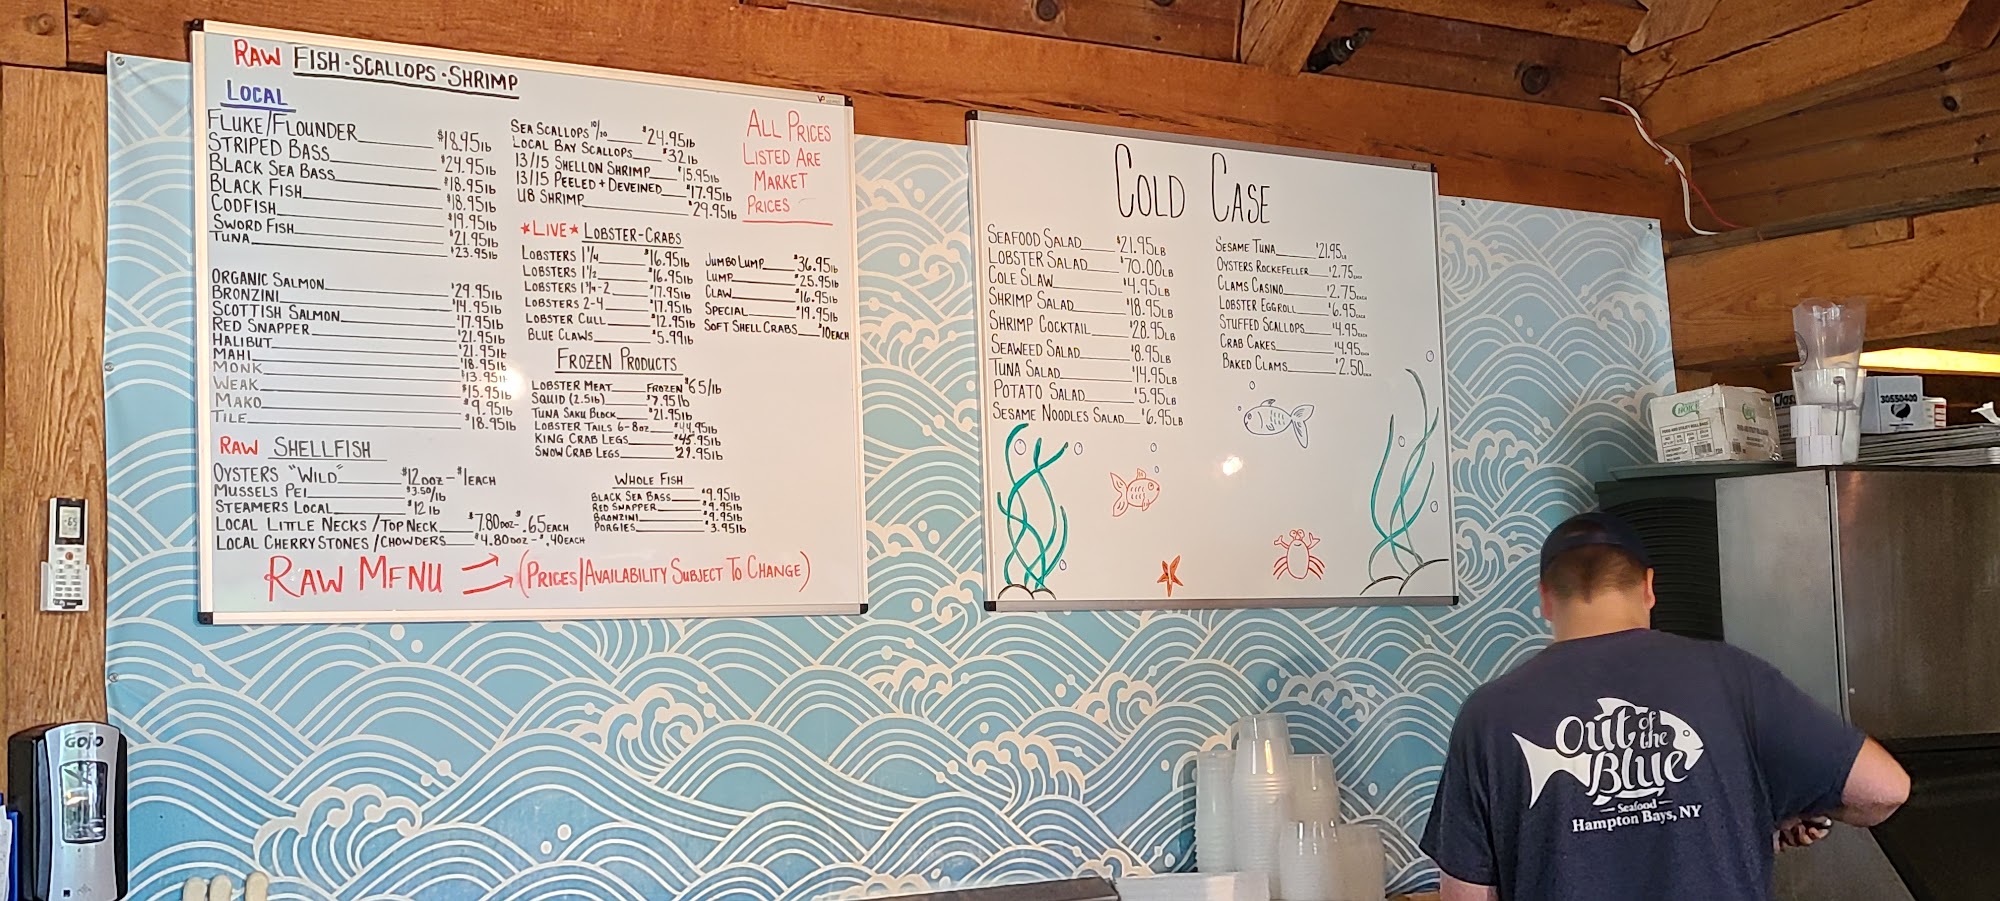 RAW FISH-SCALLOPS-SHRIMP
LOCAL
FLUKE/FLOUNDER $18.95lb
STRIPED BASS $24.95lb
BLACK SEA BASS $18.95lb
BLACK FISH $18.95lb
CODFISH $19.95lb
SWORD FISH $21.95lb
TUNA $23.95lb
ORGANIC SALMON $29.95lb
BRONZINI $14.95lb
SCOTTISH SALMON $17.95lb
RED SNAPPER $21.95lb
HALIBUT $21.95lb
MAHI $18.95lb
MONK $13.95lb
WEAK $15.95lb
MAKO $9.95lb
TILE $18.95lb
RAW SHELLFISH
OYSTERS "WILD" $12 DOZ - $1 EACH
MUSSELS PEI $3.50/lb
STEAMERS LOCAL $12 lb
LOCAL LITTLE NECKS / TOP NECK $7.80 DOZ - $.65 EACH
LOCAL CHERRYSTONES / CHOWDERS $4.80 DOZ - $.40 EACH
SEA SCALLOPS 10/20 $24.95lb
LOCAL BAY SCALLOPS $32lb
13/15 SHELLON SHRIMP $15.95lb
13/15 PEELED + DEVEINED $17.95lb
U8 SHRIMP $29.95lb
ALL PRICES
LISTED ARE
MARKET
PRICES
*LIVE* LOBSTER-CRABS
LOBSTERS 1 1/4 $16.95lb
LOBSTERS 1 1/2 $16.95lb
LOBSTERS 1 3/4-2 $17.95lb
LOBSTERS 2-4 $17.95lb
LOBSTER CULL $12.95lb
BLUE CLAWS $5.99lb
JUMBO LUMP $36.95lb
LUMP $25.95lb
CLAW $16.95lb
SPECIAL $19.95lb
SOFT SHELL CRABS $10 EACH
FROZEN PRODUCTS
LOBSTER MEAT FROZEN $65/lb
SQUID (2.5lb) $7.95lb
TUNA SAKU BLOCK $21.95lb
LOBSTER TAILS 6-8oz $44.95lb
KING CRAB LEGS $45.95lb
SNOW CRAB LEGS $29.95lb
WHOLE FISH
BLACK SEA BASS $9.95lb
RED SNAPPER $9.95lb
BRONZINI $9.95lb
PORGIES $3.95lb
RAW MENU (PRICES/AVAILABILITY SUBJECT TO CHANGE)
COLD CASE
SEAFOOD SALAD $21.95LB
LOBSTER SALAD $70.00LB
COLE SLAW $4.95LB
SHRIMP SALAD $18.95LB
SHRIMP COCKTAIL $28.95LB
SEAWEED SALAD $8.95LB
TUNA SALAD $14.95LB
POTATO SALAD $5.95LB
SESAME NOODLES SALAD $6.95LB
SESAME TUNA $21.95LB
OYSTERS ROCKEFELLER $2.75 EACH
CLAMS CASINO $2.75 EACH
LOBSTER EGGROLL $6.95 EACH
STUFFED SCALLOPS $4.95 EACH
CRAB CAKES $4.95 EACH
BAKED CLAMS $2.50 EACH
GOJO
30550400
Out of the Blue
Seafood
Hampton Bays, NY